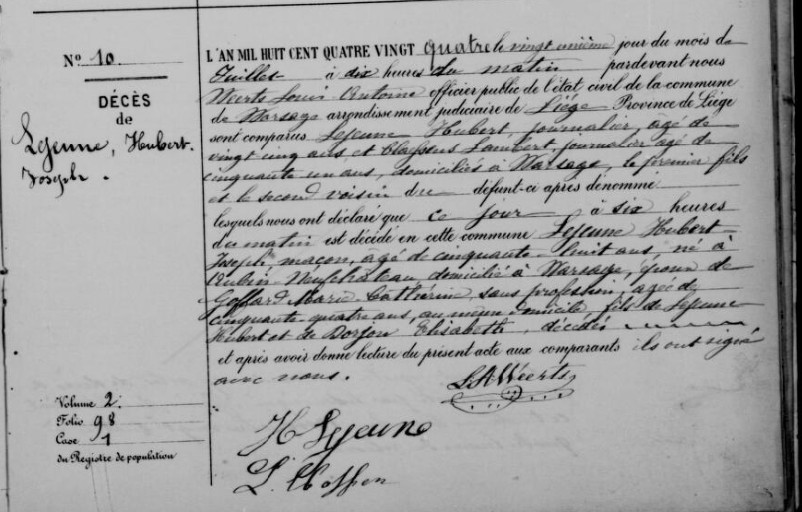 N° 10.
DÉCÈS
de
Lejeune, Hubert.
Joseph.
L'AN MIL HUIT CENT QUATRE VINGT quatre le vingt unième jour du mois de
Juillet à dix heures du matin pardevant nous
Weerts Louis Antoine officier public de l'état civil de la commune
de Warsage arrondissement judiciaire de Liége Province de Liége
sont comparus Lejeune Hubert, journalier, âgé de
vingt cinq ans, et Lambert, journalier âgé de
cinquante un ans, domiciliés à Warsage, le premier fils
et le second voisin du défunt ci-après dénommé
lesquels nous ont déclaré que ce jour à six heures
du matin est décédé en cette commune Lejeune Hubert
Joseph maçon, âgé de cinquante huit ans, né à
Aubin-Neufchateau domicilié à Warsage, époux de
Goffard Marie Catherine, sans profession, âgée de
cinquante quatre ans, au même domicile, fils de Lejeune
Hubert et de Elisabeth, décédés
et après avoir donné lecture du présent acte aux comparants ils ont signé
avec nous.
LAWeerts
H Lejeune
L.
Volume 2.
Folio 98
Case 1
du Registre de population